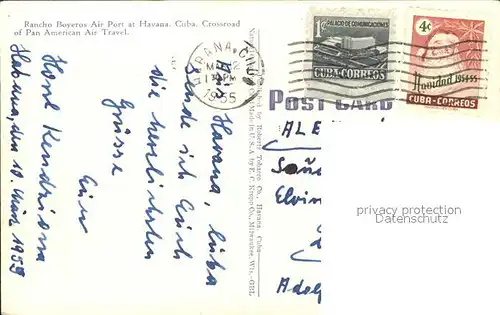 Rancho Boyeros Air Port at Havana, Cuba, Crossroad
of Pan American Air Travel.
Aus Havana, Cuba
sende ich Euch
die herzlichsten
Grüsse
Euer
Horst
Habana, den 10. März 1955
Natural
by Roberts Tobacco Co., Havana, Cuba
Made in U.S.A. by E. C. Kropp Co., Milwaukee, Wis.
POST CARD
HABANA, CUBA
1955
1c PALACIO DE COMUNICACIONES
CUBA-CORREOS
4c
Navidad 1954-55
CUBA-CORREOS
ALE
Elvin
Adol
privacy protection
Datenschutz